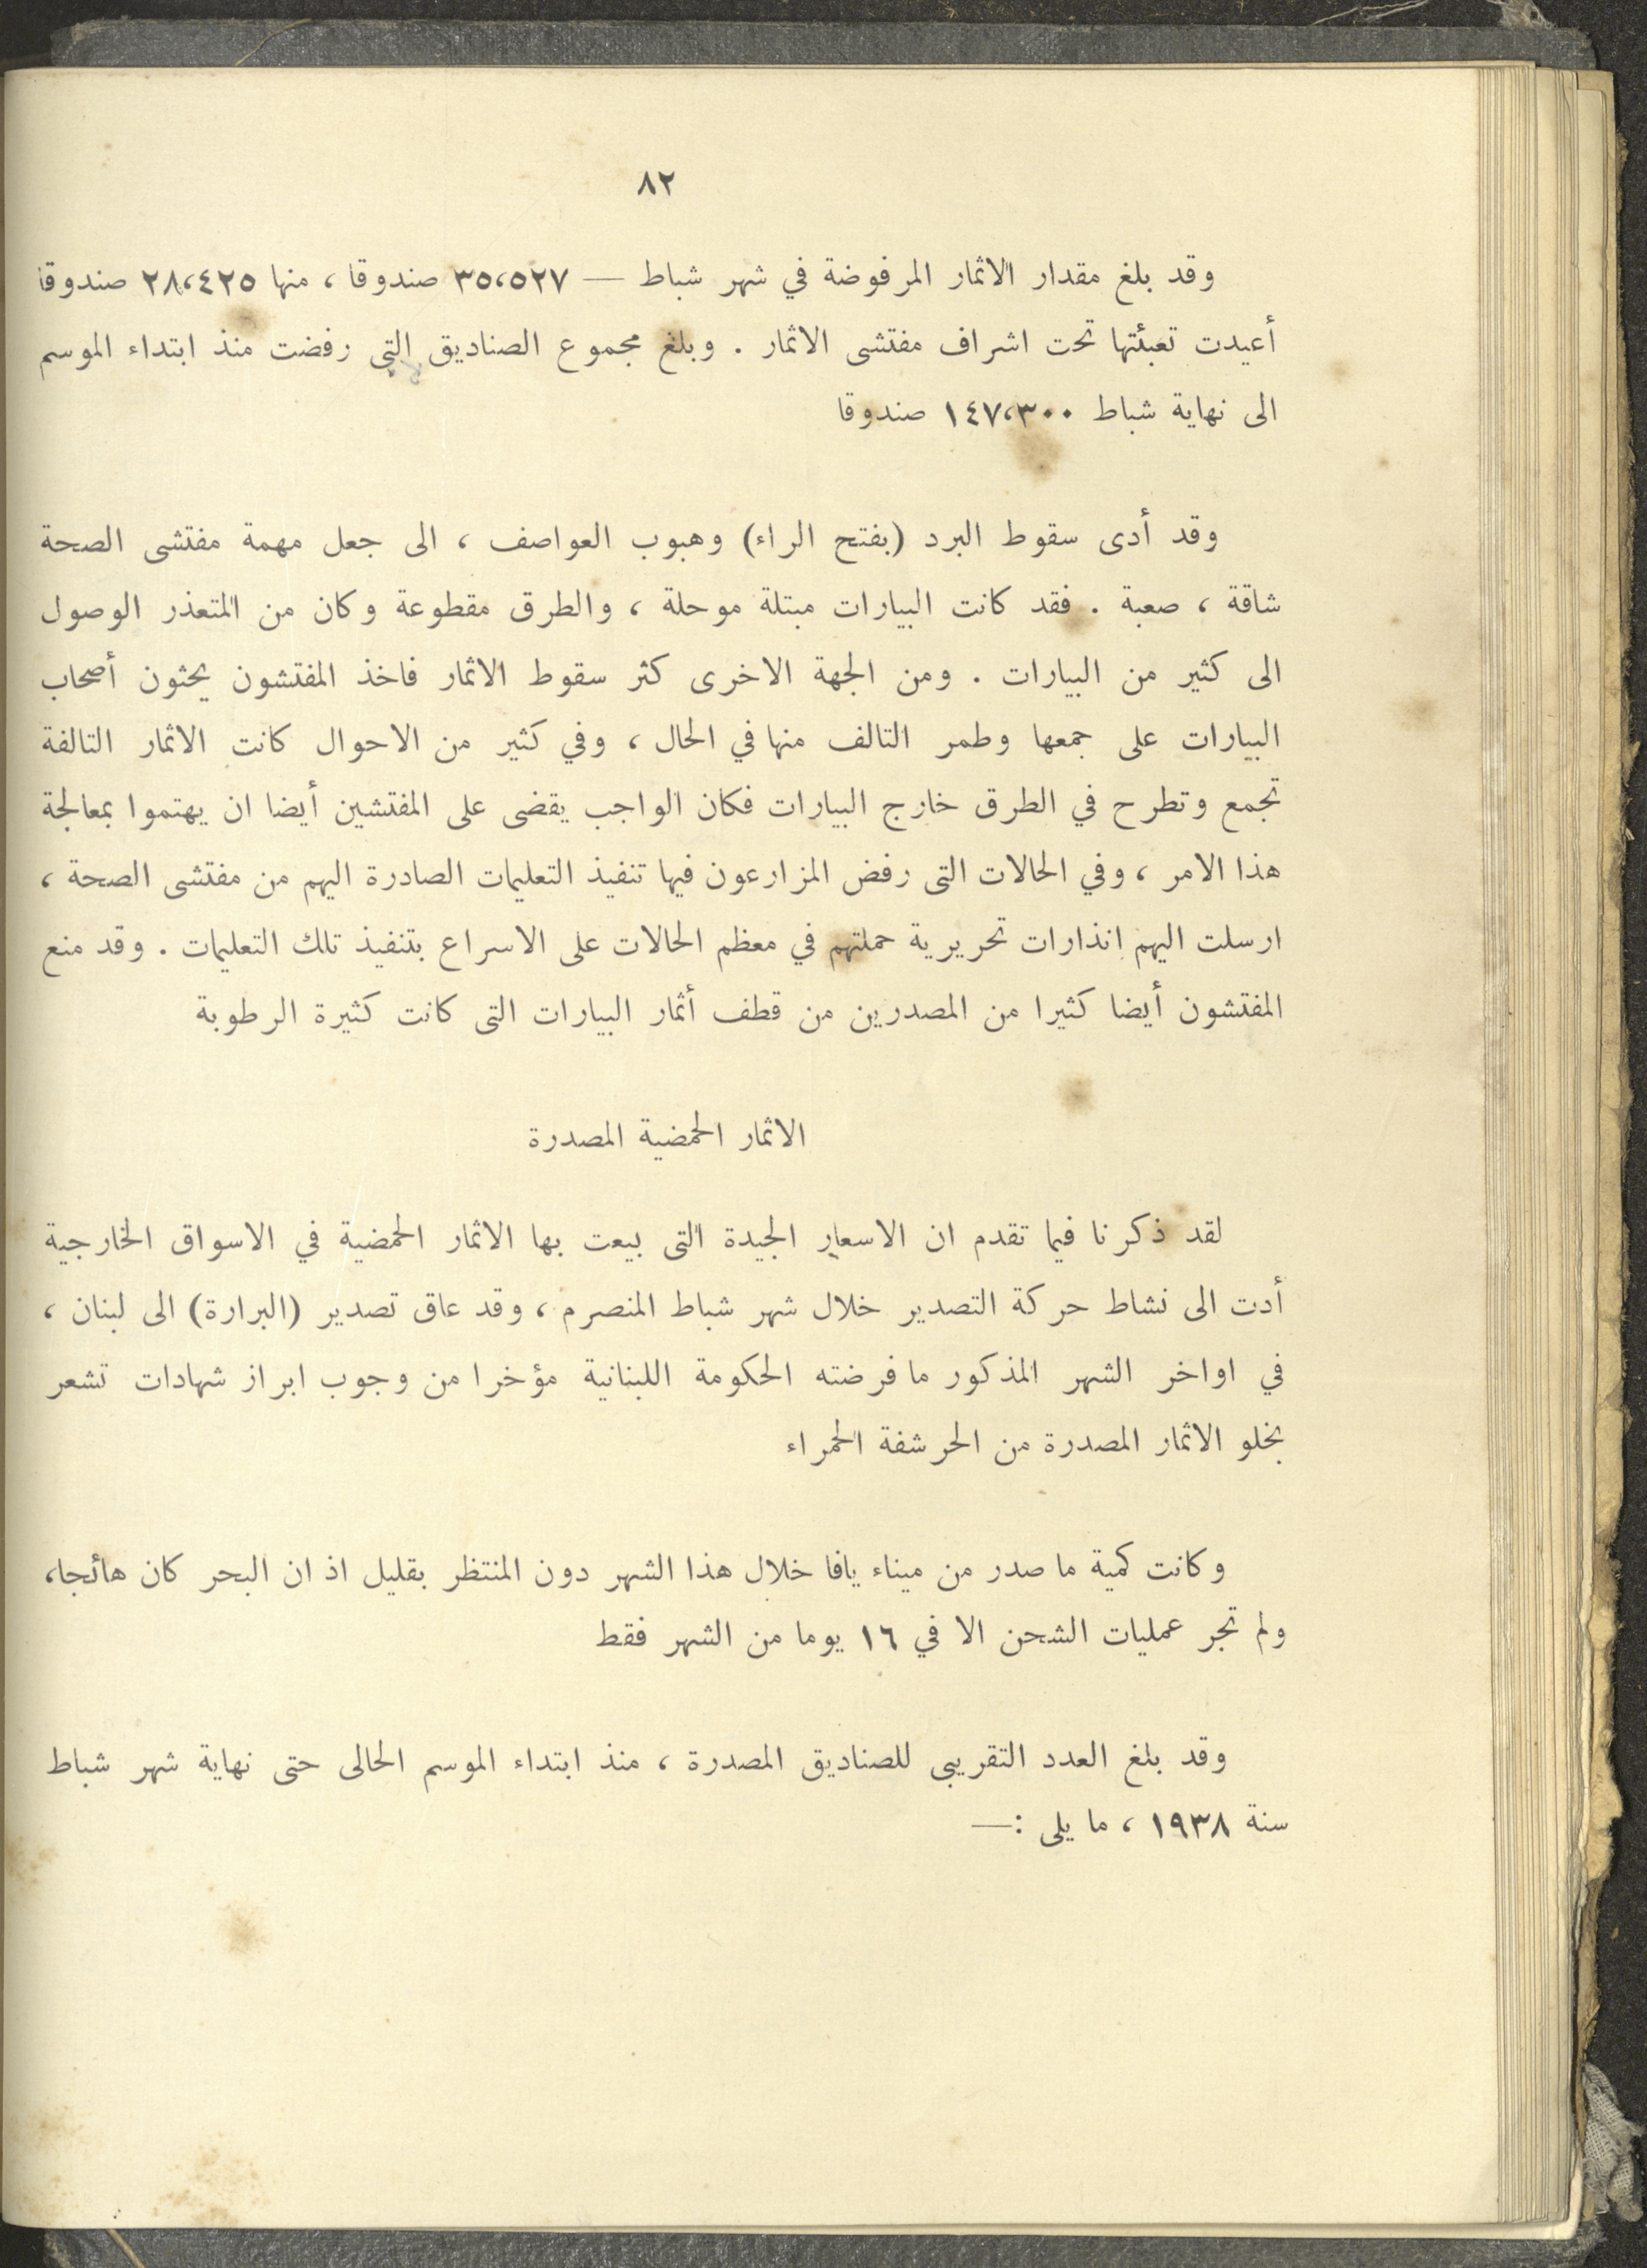 ٨٢
وقد بلغ مقدار الاثمار المرفوضة في شهر شباط — ٣٥،٥٢٧ صندوقا ، منها ٢٨،٤٢٥ صندوقا
أعيدت تعبئتها تحت اشراف مفتشى الاثمار . وبلغ مجموع الصناديق التى رفضت منذ ابتداء الموسم
الى نهاية شباط ١٤٧،٣٠٠ صندوقا
وقد أدى سقوط البرد (بفتح الراء) وهبوب العواصف ، الى جعل مهمة مفتشى الصحة
شاقة ، صعبة . فقد كانت البيارات مبتلة موحلة ، والطرق مقطوعة وكان من المتعذر الوصول
الى كثير من البيارات . ومن الجهة الاخرى كثر سقوط الاثمار فاخذ المفتشون يحثون أصحاب
البيارات على جمعها وطمر التالف منها في الحال ، وفي كثير من الاحوال كانت الاثمار التالفة
تجمع وتطرح في الطرق خارج البيارات فكان الواجب يقضى على المفتشين أيضا ان يهتموا بمعالجة
هذا الامر ، وفي الحالات التى رفض المزارعون فيها تنفيذ التعليمات الصادرة اليهم من مفتشى الصحة ،
ارسلت اليهم انذارات تحريرية حملتهم في معظم الحالات على الاسراع بتنفيذ تلك التعليمات . وقد منع
المفتشون أيضا كثيرا من المصدرين من قطف أثمار البيارات التى كانت كثيرة الرطوبة
الاثمار الحمضية المصدرة
لقد ذكرنا فيما تقدم ان الاسعار الجيدة التى بيعت بها الاثمار الحمضية في الاسواق الخارجية
أدت الى نشاط حركة التصدير خلال شهر شباط المنصرم ، وقد عاق تصدير (البرارة) الى لبنان ،
في اواخر الشهر المذكور ما فرضته الحكومة اللبنانية مؤخرا من وجوب ابراز شهادات تشعر
بخلو الاثمار المصدرة من الحرشفة الحمراء
وكانت كمية ما صدر من ميناء يافا خلال هذا الشهر دون المنتظر بقليل اذ ان البحر كان هائجا،
ولم تجر عمليات الشحن الا في ١٦ يوما من الشهر فقط
وقد بلغ العدد التقريبى للصناديق المصدرة ، منذ ابتداء الموسم الحالى حتى نهاية شهر شباط
سنة ١٩٣٨ ، ما يلى :—